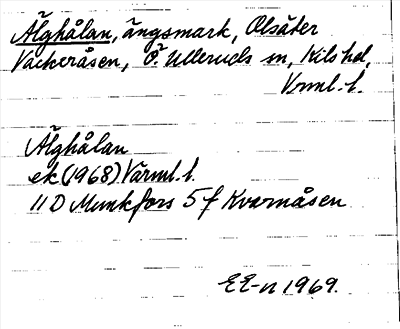 Älghålan, ängsmark, Olsäter
Väckeråsen, Ö. Ulleruds sn, Kils hd,
Vrml. l.
Älghålan
ek (1968) Värml. l.
11 D Munkfors 5 f Kvarnåsen
EE-n 1969.